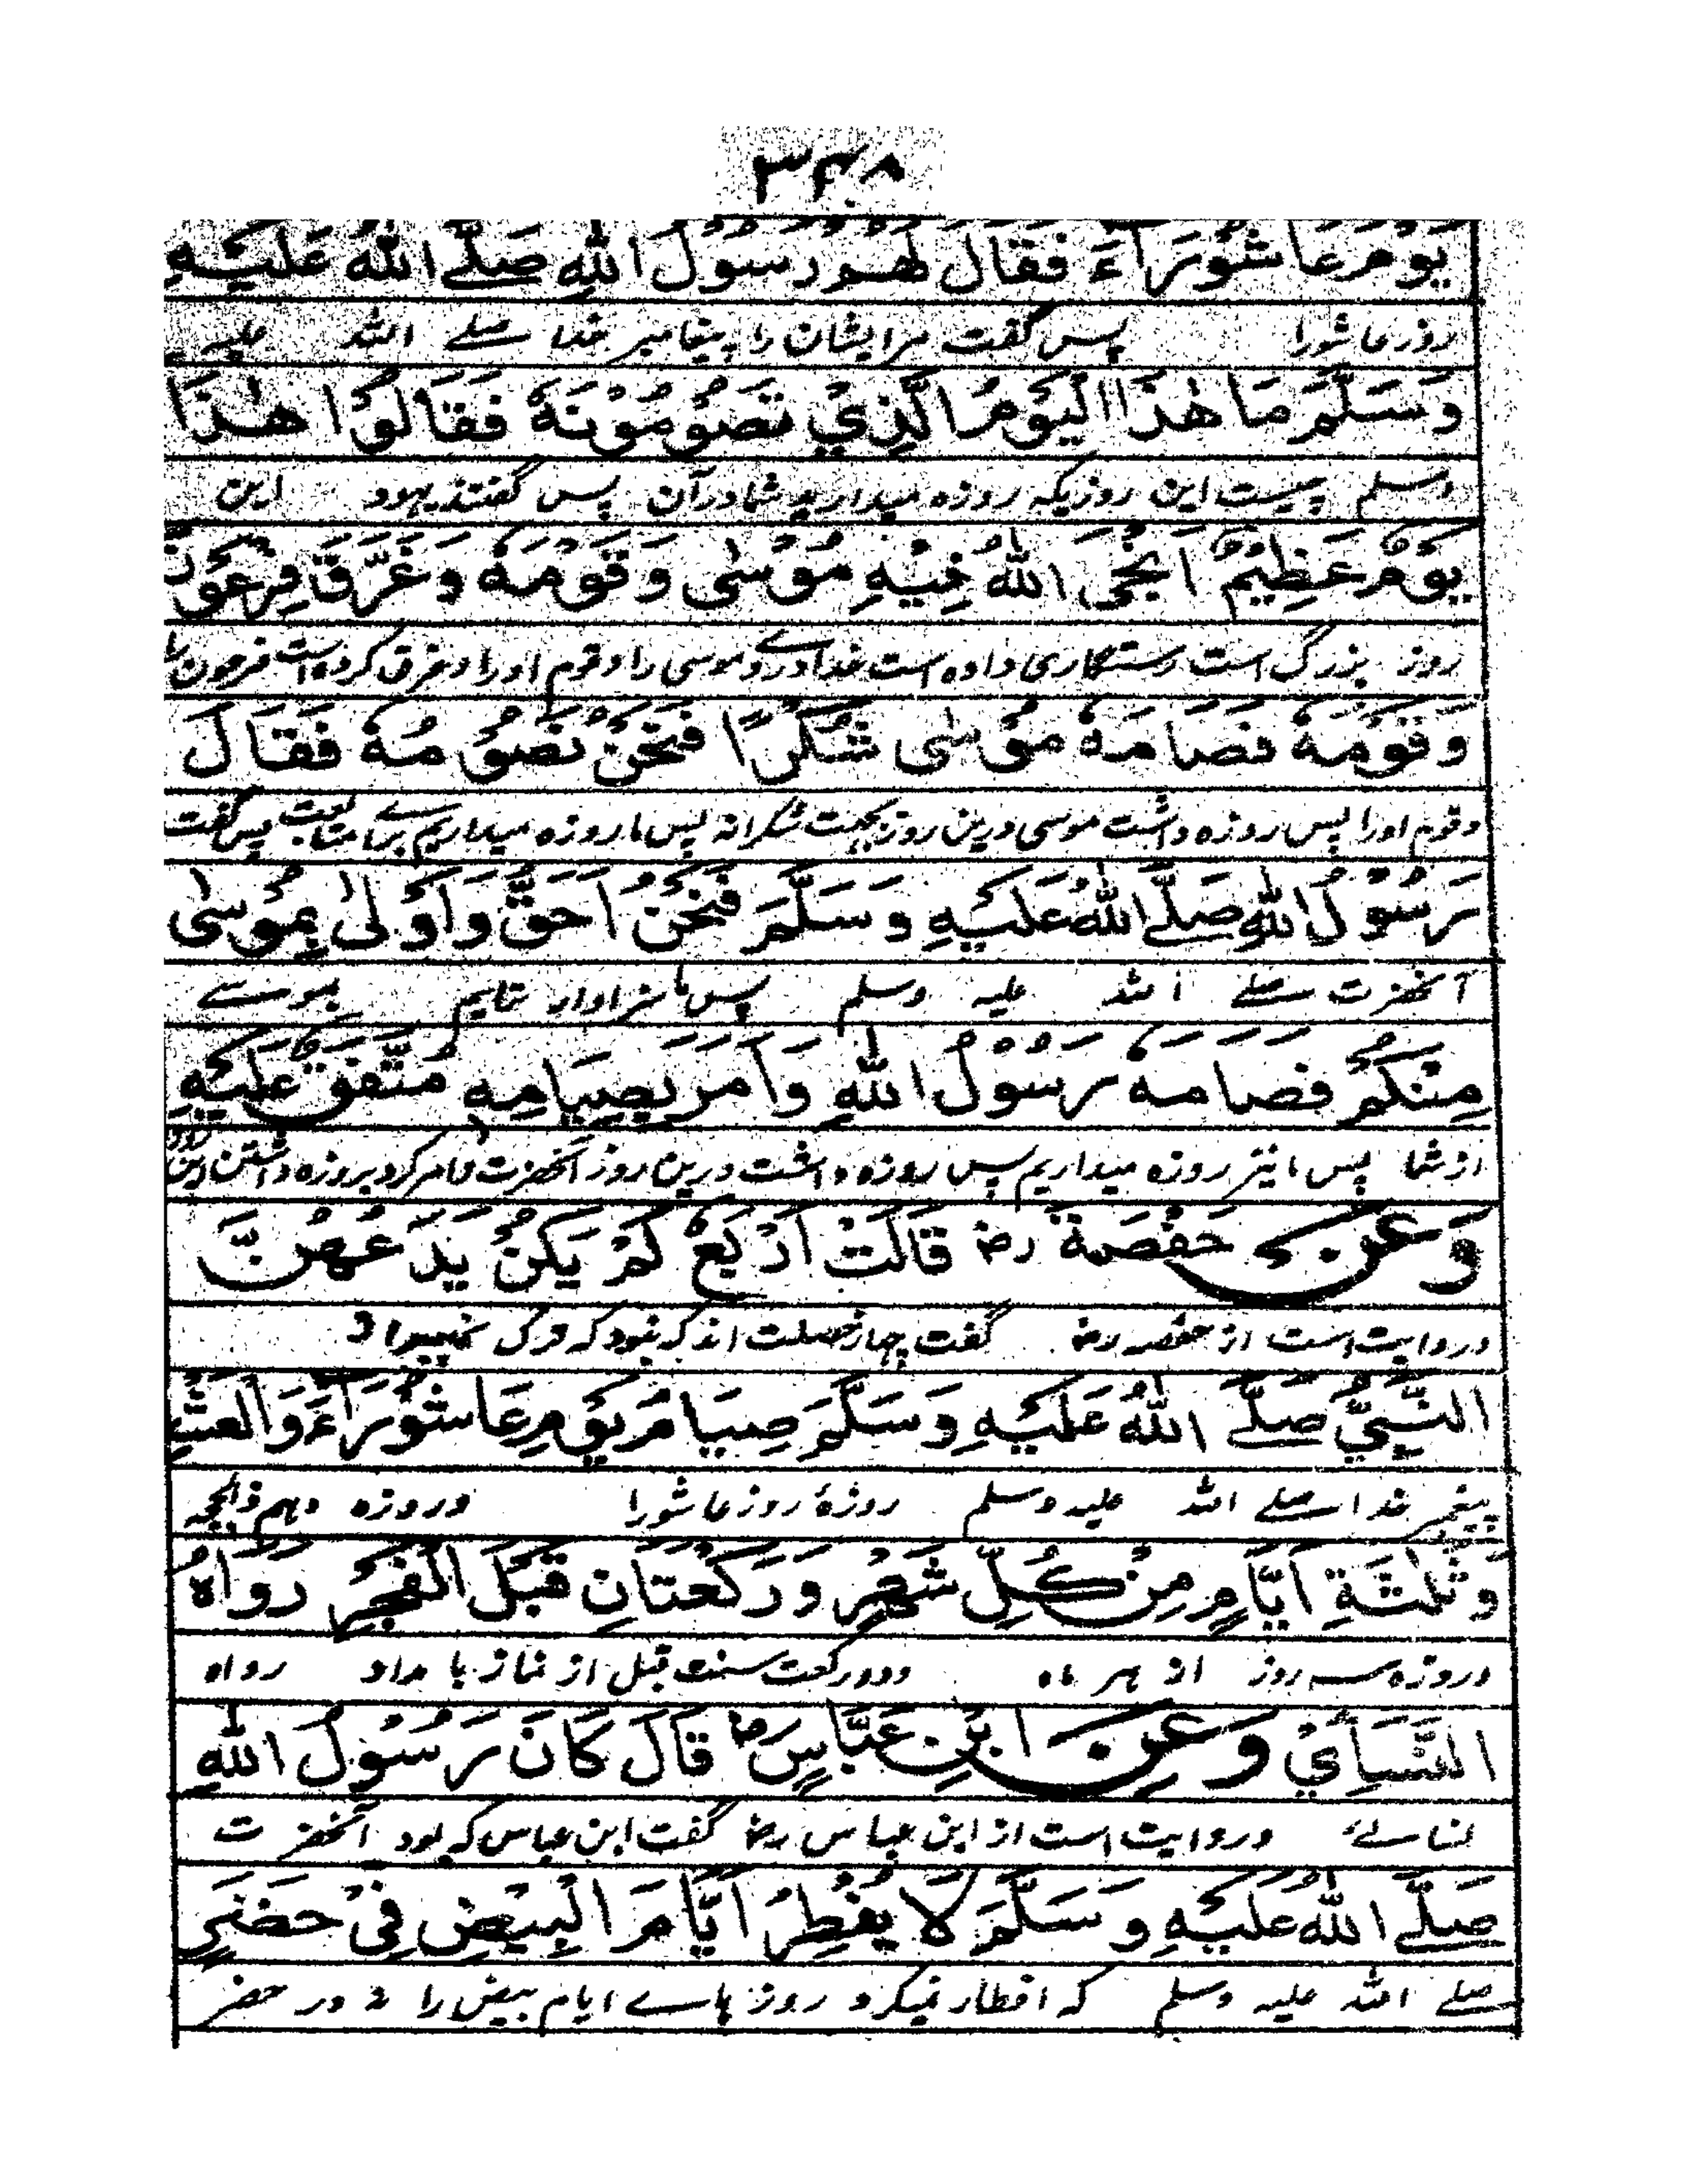 ۳۴۸
يَوْمَ عَاشُوْرَآءَ فَقَالَ لَهُمْ رَسُوْلُ اللهِ صَلَّے اللهُ عَلَيْهِ
روز عاشورا پس گفت مرایشان را پیغامبر خدا صلے الله علیه
وَسَلَّمَ مَا هٰذَا الْيَوْمُ الَّذِيْ تَصُوْمُوْنَهٗ فَقَالُوْا هٰذَا
وسلم چیست این روزیکه روزه میدارید شما درآن پس گفتند یهود این
يَوْمٌ عَظِيْمٌ اَنْجَى اللهُ فِيْهِ مُوْسٰى وَقَوْمَهٗ وَغَرَّقَ فِرْعَوْنَ
روز بزرگ است رستگاری داده است خدا درو موسی را و قوم اورا و غرق کرده است فرعون را
وَقَوْمَهٗ فَصَامَهٗ مُوْسٰى شُكْرًا فَنَحْنُ نَصُوْمُهٗ فَقَالَ
وقوم اورا پس روزه داشت موسی درین روز بجهت شکرانه پس ما روزه میداریم برائے متابعت پس گفت
رَسُوْلُ اللهِ صَلَّے اللهُ عَلَيْهِ وَسَلَّمَ فَنَحْنُ اَحَقُّ وَاَوْلٰى بِمُوْسٰى
آنحضرت صلے الله علیه وسلم پس ما سزاوار تریم بموسے
مِنْكُمْ فَصَامَهٗ رَسُوْلُ اللهِ وَاَمَرَ بِصِيَامِهٖ مُتَّفَقٌ عَلَيْهِ
از شما پس ما نیز روزه میداریم پس روزه داشت درین روز آنحضرت و امر کرد بروزه داشتن این روز
وَعَنْ حَفْصَةَ رض قَالَتْ اَرْبَعٌ لَمْ يَكُنْ يَدَعُهُنَّ
وروایت است از حفصه رض گفت چهار خصلت اند که نبود که ترک
النَّبِيُّ صَلَّے اللهُ عَلَيْهِ وَسَلَّمَ صِيَامُ يَوْمِ عَاشُوْرَآءَ وَالْعَشْرِ
پیغمبر خدا صلے الله علیه وسلم روزهٔ روز عاشورا وروزه دهم ذالحجه
وَثَلٰثَةِ اَيَّامٍ مِنْ كُلِّ شَهْرٍ وَرَكْعَتَانِ قَبْلَ الْفَجْرِ رَوَاهُ
وروزه سه روز از هر ماه ودو رکعت سنت قبل از نماز بامداد رواه
النَّسَائِيْ وَعَنِ ابْنِ عَبَّاسٍ رض قَالَ كَانَ رَسُوْلُ اللهِ
نسائے وروایت است از ابن عباس رض گفت ابن عباس که بود آنحضرت
صَلَّے اللهُ عَلَيْهِ وَسَلَّمَ لَا يُفْطِرُ اَيَّامَ الْبِيْضِ فِيْ حَضَرٍ
صلے الله علیه وسلم که افطار نمیکرد روز هاے ایام بیض را نه در حضر